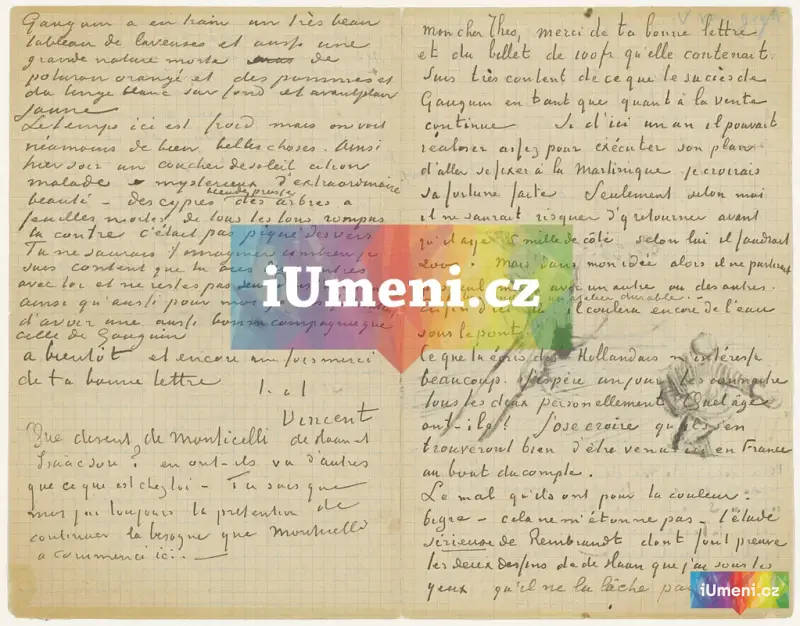 Gauguin a en train un très beau
tableau de laveuses et aussi une
grande nature morte de
potiron orangé et des pommes et
du linge blanc sur fond et avantplan
jaune
Le temps ici est froid mais on voit
néamoins de bien belles choses. Ainsi
hier soir un coucher de soleil citron
malade mysterieux d'extraordinaire
beauté – des cyprès bleu de prusse des arbres a
feuilles mortes de tous les tons rompus
la contre c'était pas piqué des vers
Tu ne saurais t'imaginer combien je
suis content que tu aies les peintres
avec toi et ne restes pas seul
ainsi qu'aussi pour moi
d'avoir une aussi bonne compagnie que
celle de Gauguin
a bientôt et encore une fois merci
de ta bonne lettre
t. à t.
Vincent
Que disent de Monticelli de Haan et
Isaäcson? en ont-ils vu d'autres
que ce que est chez toi – Tu sais que
moi j'ai toujours la prétention de
continuer la besogne que Monticelli
a commencé ici. –
mon cher Theo, merci de ta bonne lettre
et du billet de 100 fr qu'elle contenait.
Suis très content de ce que le succès de
Gauguin en tant que quant à la vente
continue Si d'ici un an il pouvait
realiser assez pour exécuter son plan
d'aller se fixer à la Martinique je croirais
sa fortune faite Seulement selon moi
il ne saurait risquer d'y retourner avant
qu'il aye 5 mille de côté. selon lui il faudrait
2000. Mais dans mon idée alors il ne partirait
pas seul mais avec un autre ou des autres.
un atelier durable.
Enfin d'ici là il coulera encore de l'eau
sous le pont.
Ce que tu écris des Hollandais m'intéresse
beaucoup. J'espère un jour les connaitre
tous les deux personellement. Quel âge
ont-ils? J'ose croire qu'ils s'en
trouveront bien d'être venus ici en France
au bout du compte.
Le mal qu'ils ont pour la couleur.
bigre – cela ne m'étonne pas – l'étude
sérieuse de Rembrandt dont font preuve
les deux dessins de de Haan que j'ai sous les
yeux qu'il ne la lâche pas
iUmeni.cz
iUmeni.cz